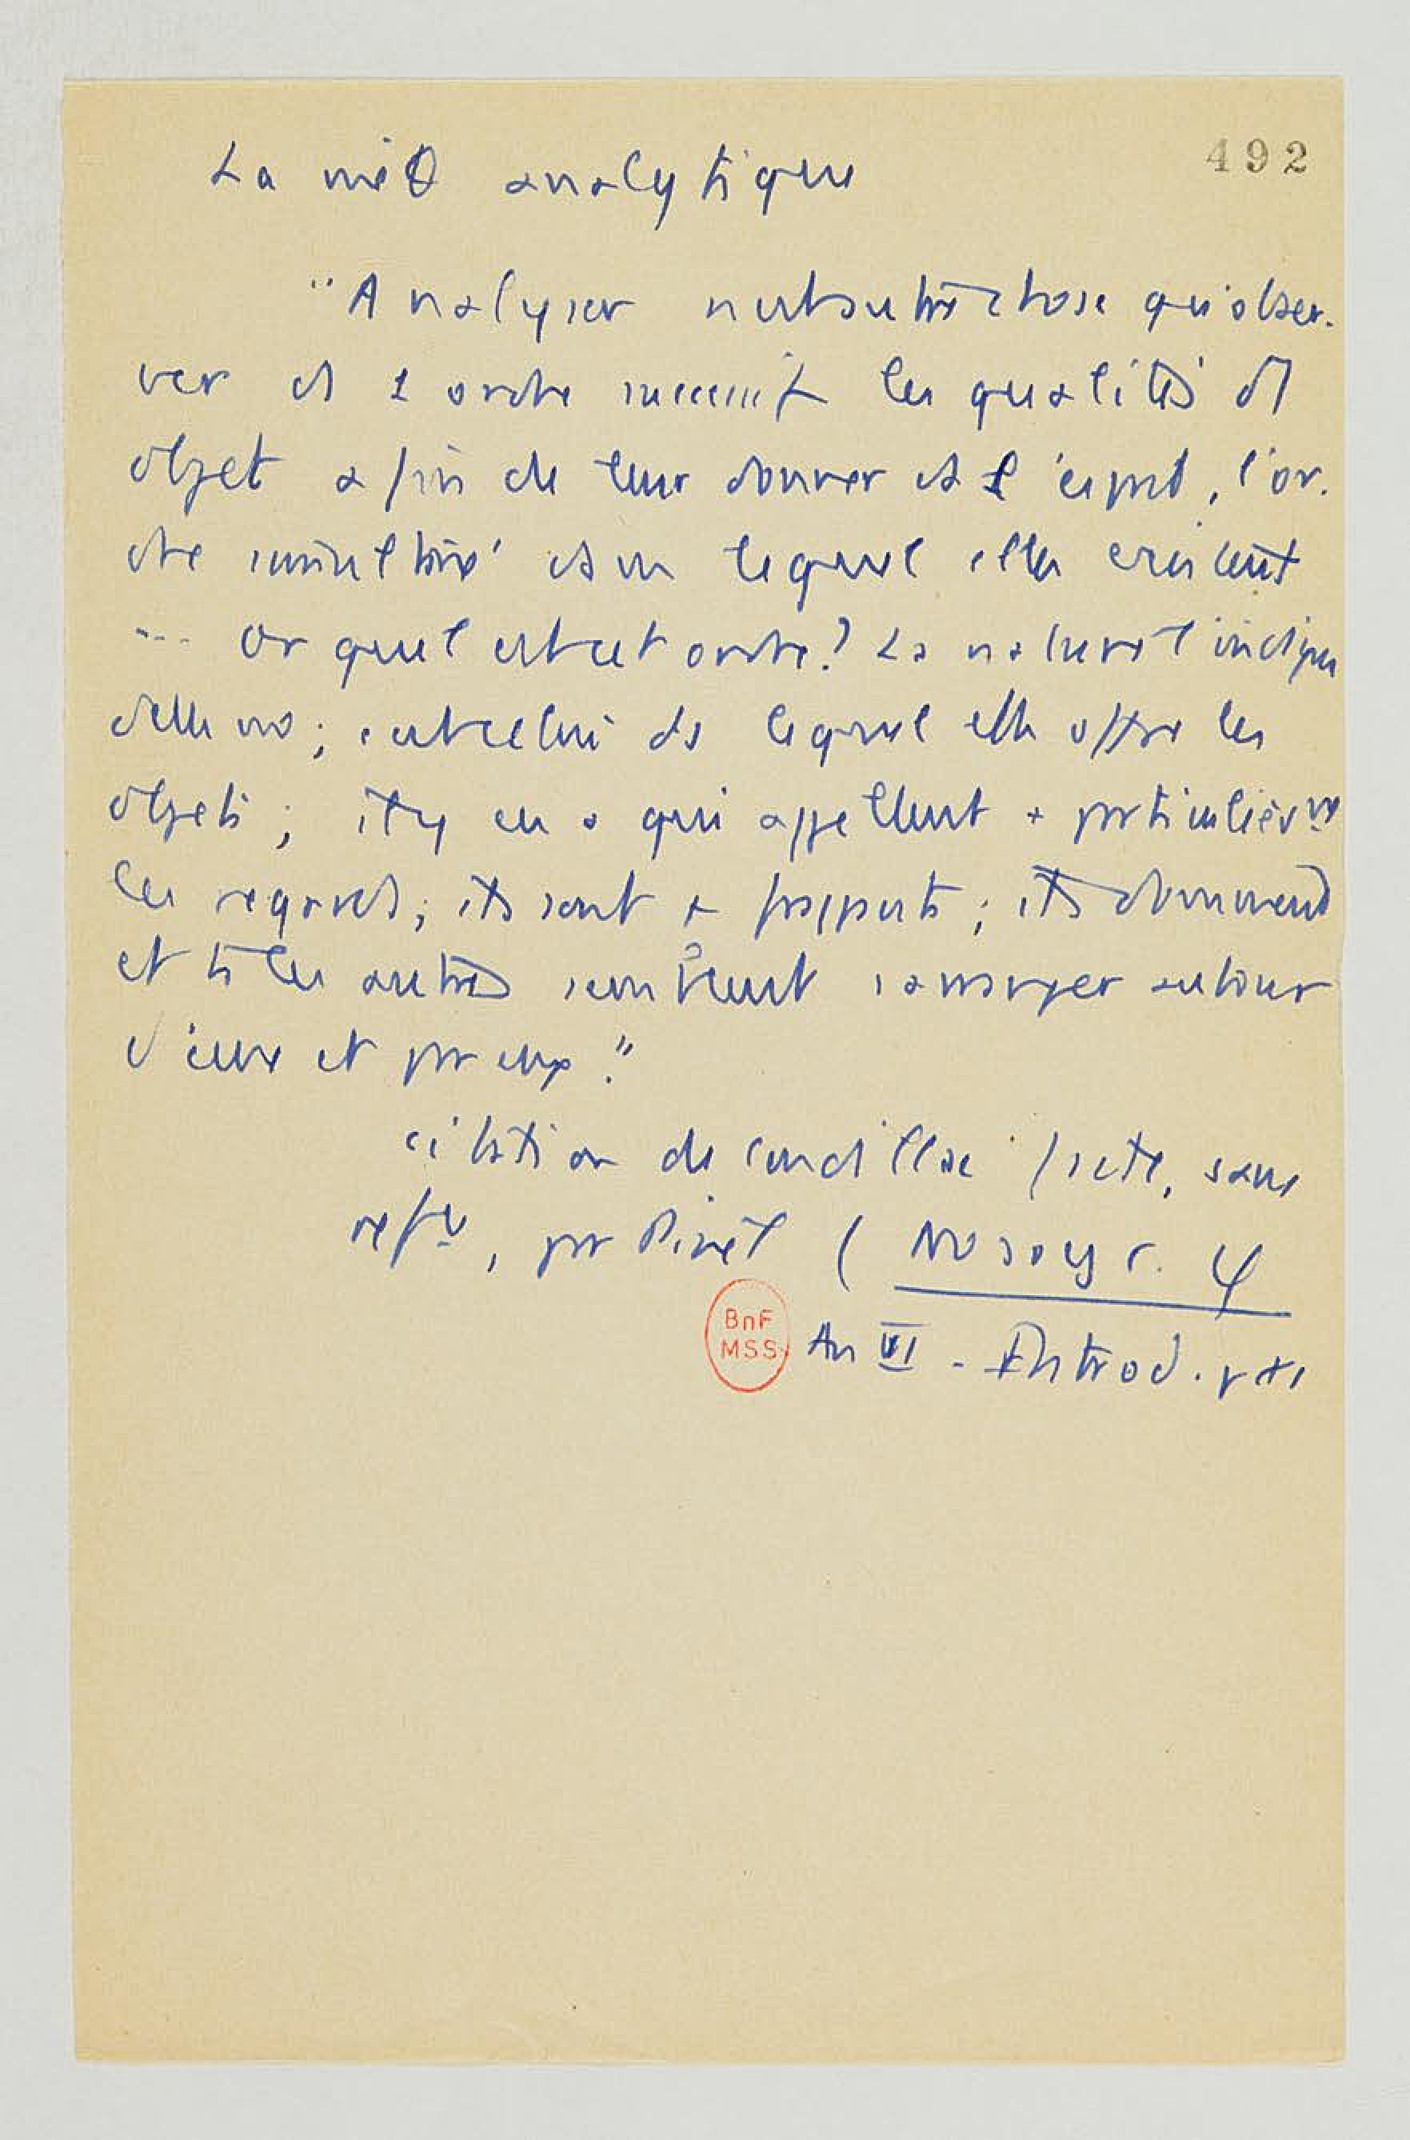 La méθ analytique
492
"Analyser n'est autre chose qu'obser-
ver ds 1 ordre successif les qualités d'1
objet afin de leur donner ds l'esprit, l'or-
dre simultané dans lequel elles existent
... Or quel est cet ordre? La nature l'indique
d'elle m̂; c'est celui ds lequel elle offre les
objets; il y en a qui appellent + particulièrmt
les regards; ils sont + frappants; ils dominent
et ts les autres semblent s'arranger autour
d'eux et pr eux."
citation de Condillac faite, sans
refce, par Pinel ( Nosogr. φ
BnF
MSS
An VI - Introd. p